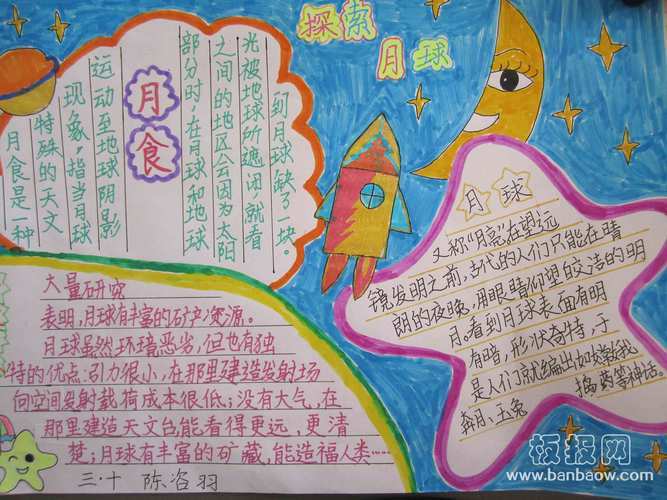 探索
月球
月食
月食是一种
特殊的天文
现象,指当月球
运动至地球阴影
部分时,在月球和地球
之间的地区会因为太阳
光被地球所遮闭,就看
到月球缺了一块。
月球
又称“月亮”在望远
镜发明之前,古代的人们只能在晴
朗的夜晚,用眼睛仰望皎洁的明
月。看到月球表面有明
有暗,形状奇特,于
是人们就编出如嫦娥
奔月、玉兔捣药等神话。
大量研究
表明,月球有丰富的矿产资源。
月球虽然环境恶劣,但也有独
特的优点:引力很小,在那里建造发射场
向空间发射载荷成本很低;没有大气,在
那里建造天文台能看得更远,更清
楚;月球有丰富的矿藏,能造福人类…
三·十 陈咨羽
板报网
www.banbaow.com